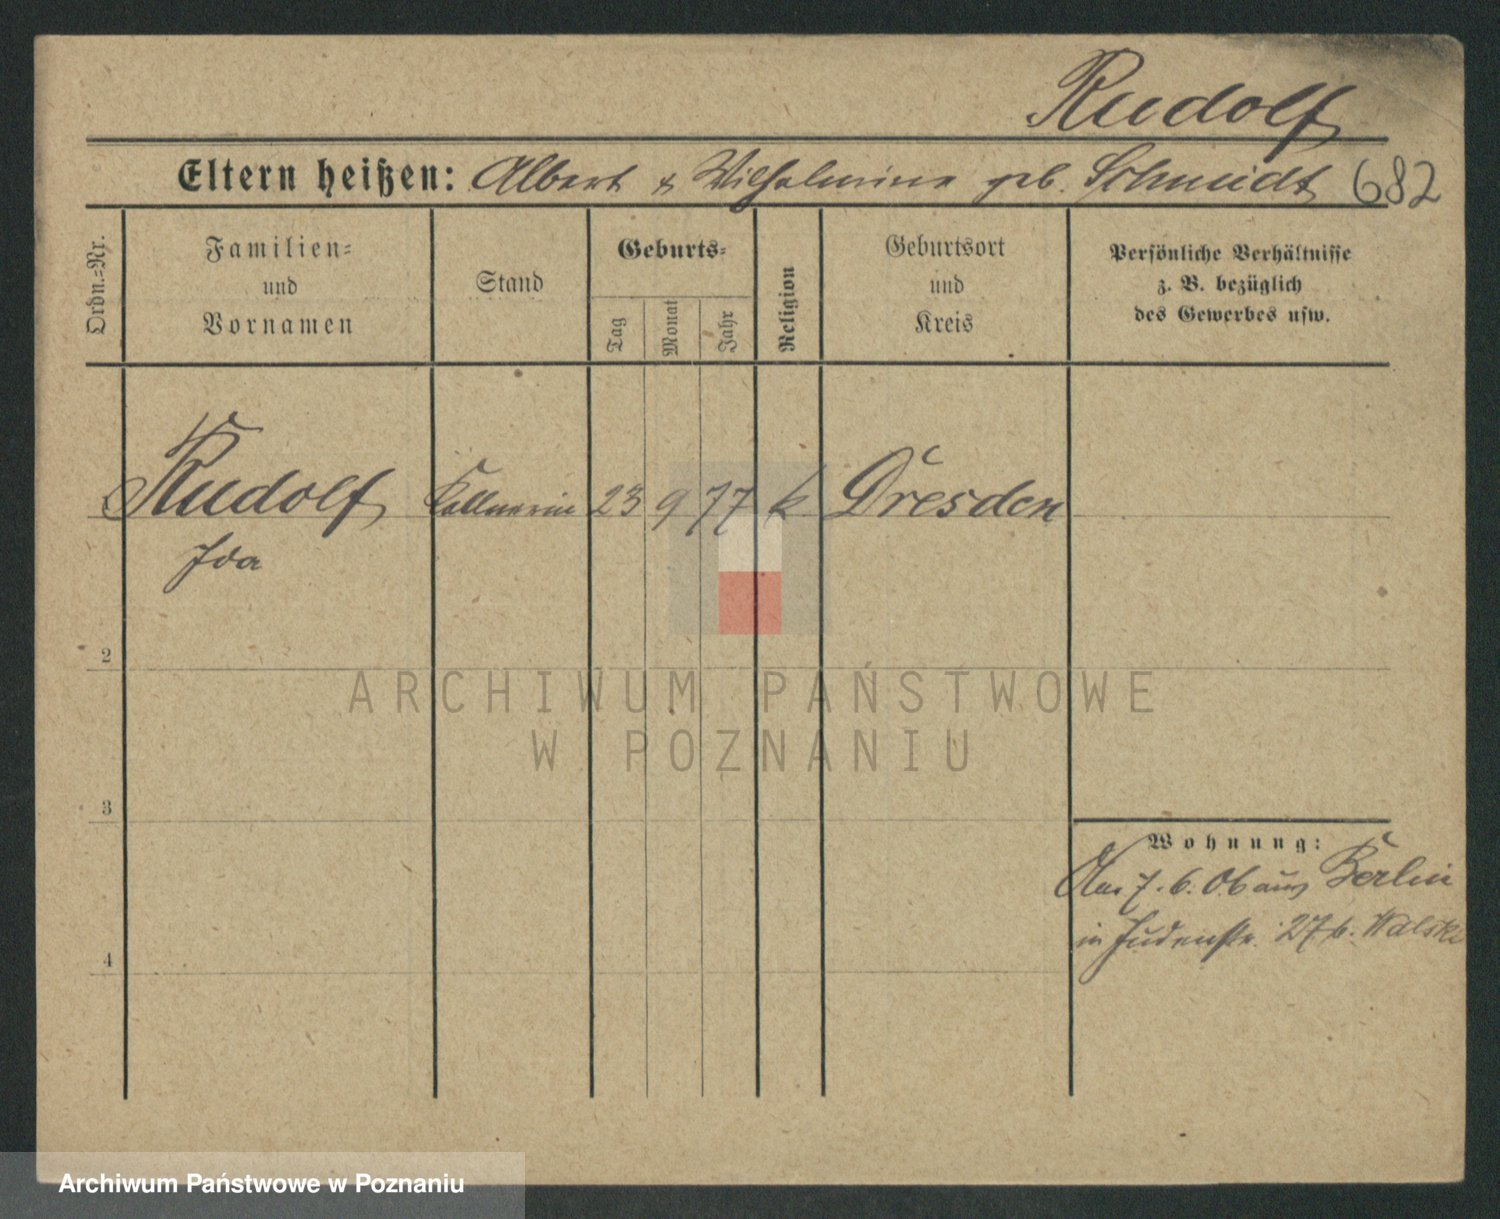 Rudolf
Eltern heißen: Albert & Wilhelmine geb. Schmidt 682
Ordn.-Nr.
Familien-
und
Vornamen
Stand
Geburts-
Tag
Monat
Jahr
Religion
Geburtsort
und
Kreis
Persönliche Verhältnisse
z. B. bezüglich
des Gewerbes usw.
Rudolf Kellnerin 23 9 77 k Dresden
Ida
2
ARCHIWUM PAŃSTWOWE
W POZNANIU
3
Wohnung:
7. 6. 06 aus Berlin
in Judenstr. 27 b. Walski
4
Archiwum Państwowe w Poznaniu